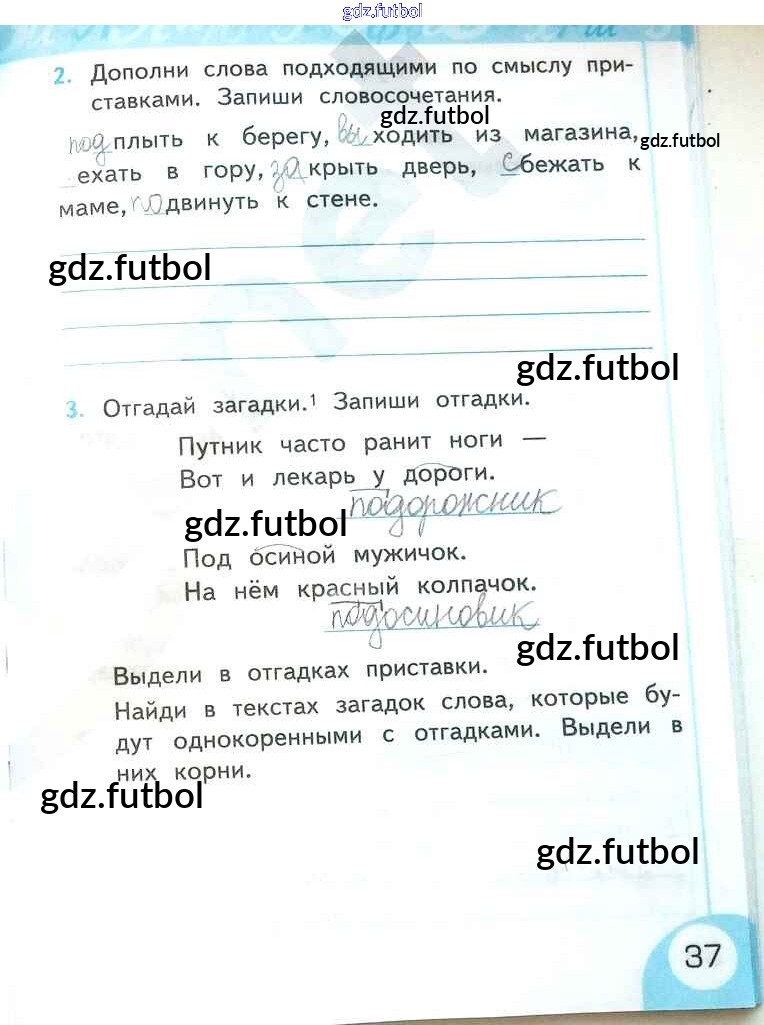 gdz.futbol
2. Дополни слова подходящими по смыслу при-
ставками. Запиши словосочетания.
gdz.futbol
подплыть к берегу, выходить из магазина,
gdz.futbol
ехать в гору, закрыть дверь, сбежать к
маме, подвинуть к стене.
gdz.futbol
gdz.futbol
3. Отгадай загадки.¹ Запиши отгадки.
Путник часто ранит ноги —
Вот и лекарь у дороги.
подорожник
gdz.futbol
Под осиной мужичок.
На нём красный колпачок.
подосиновик
gdz.futbol
Выдели в отгадках приставки.
Найди в текстах загадок слова, которые бу-
дут однокоренными с отгадками. Выдели в
них корни.
gdz.futbol
gdz.futbol
37